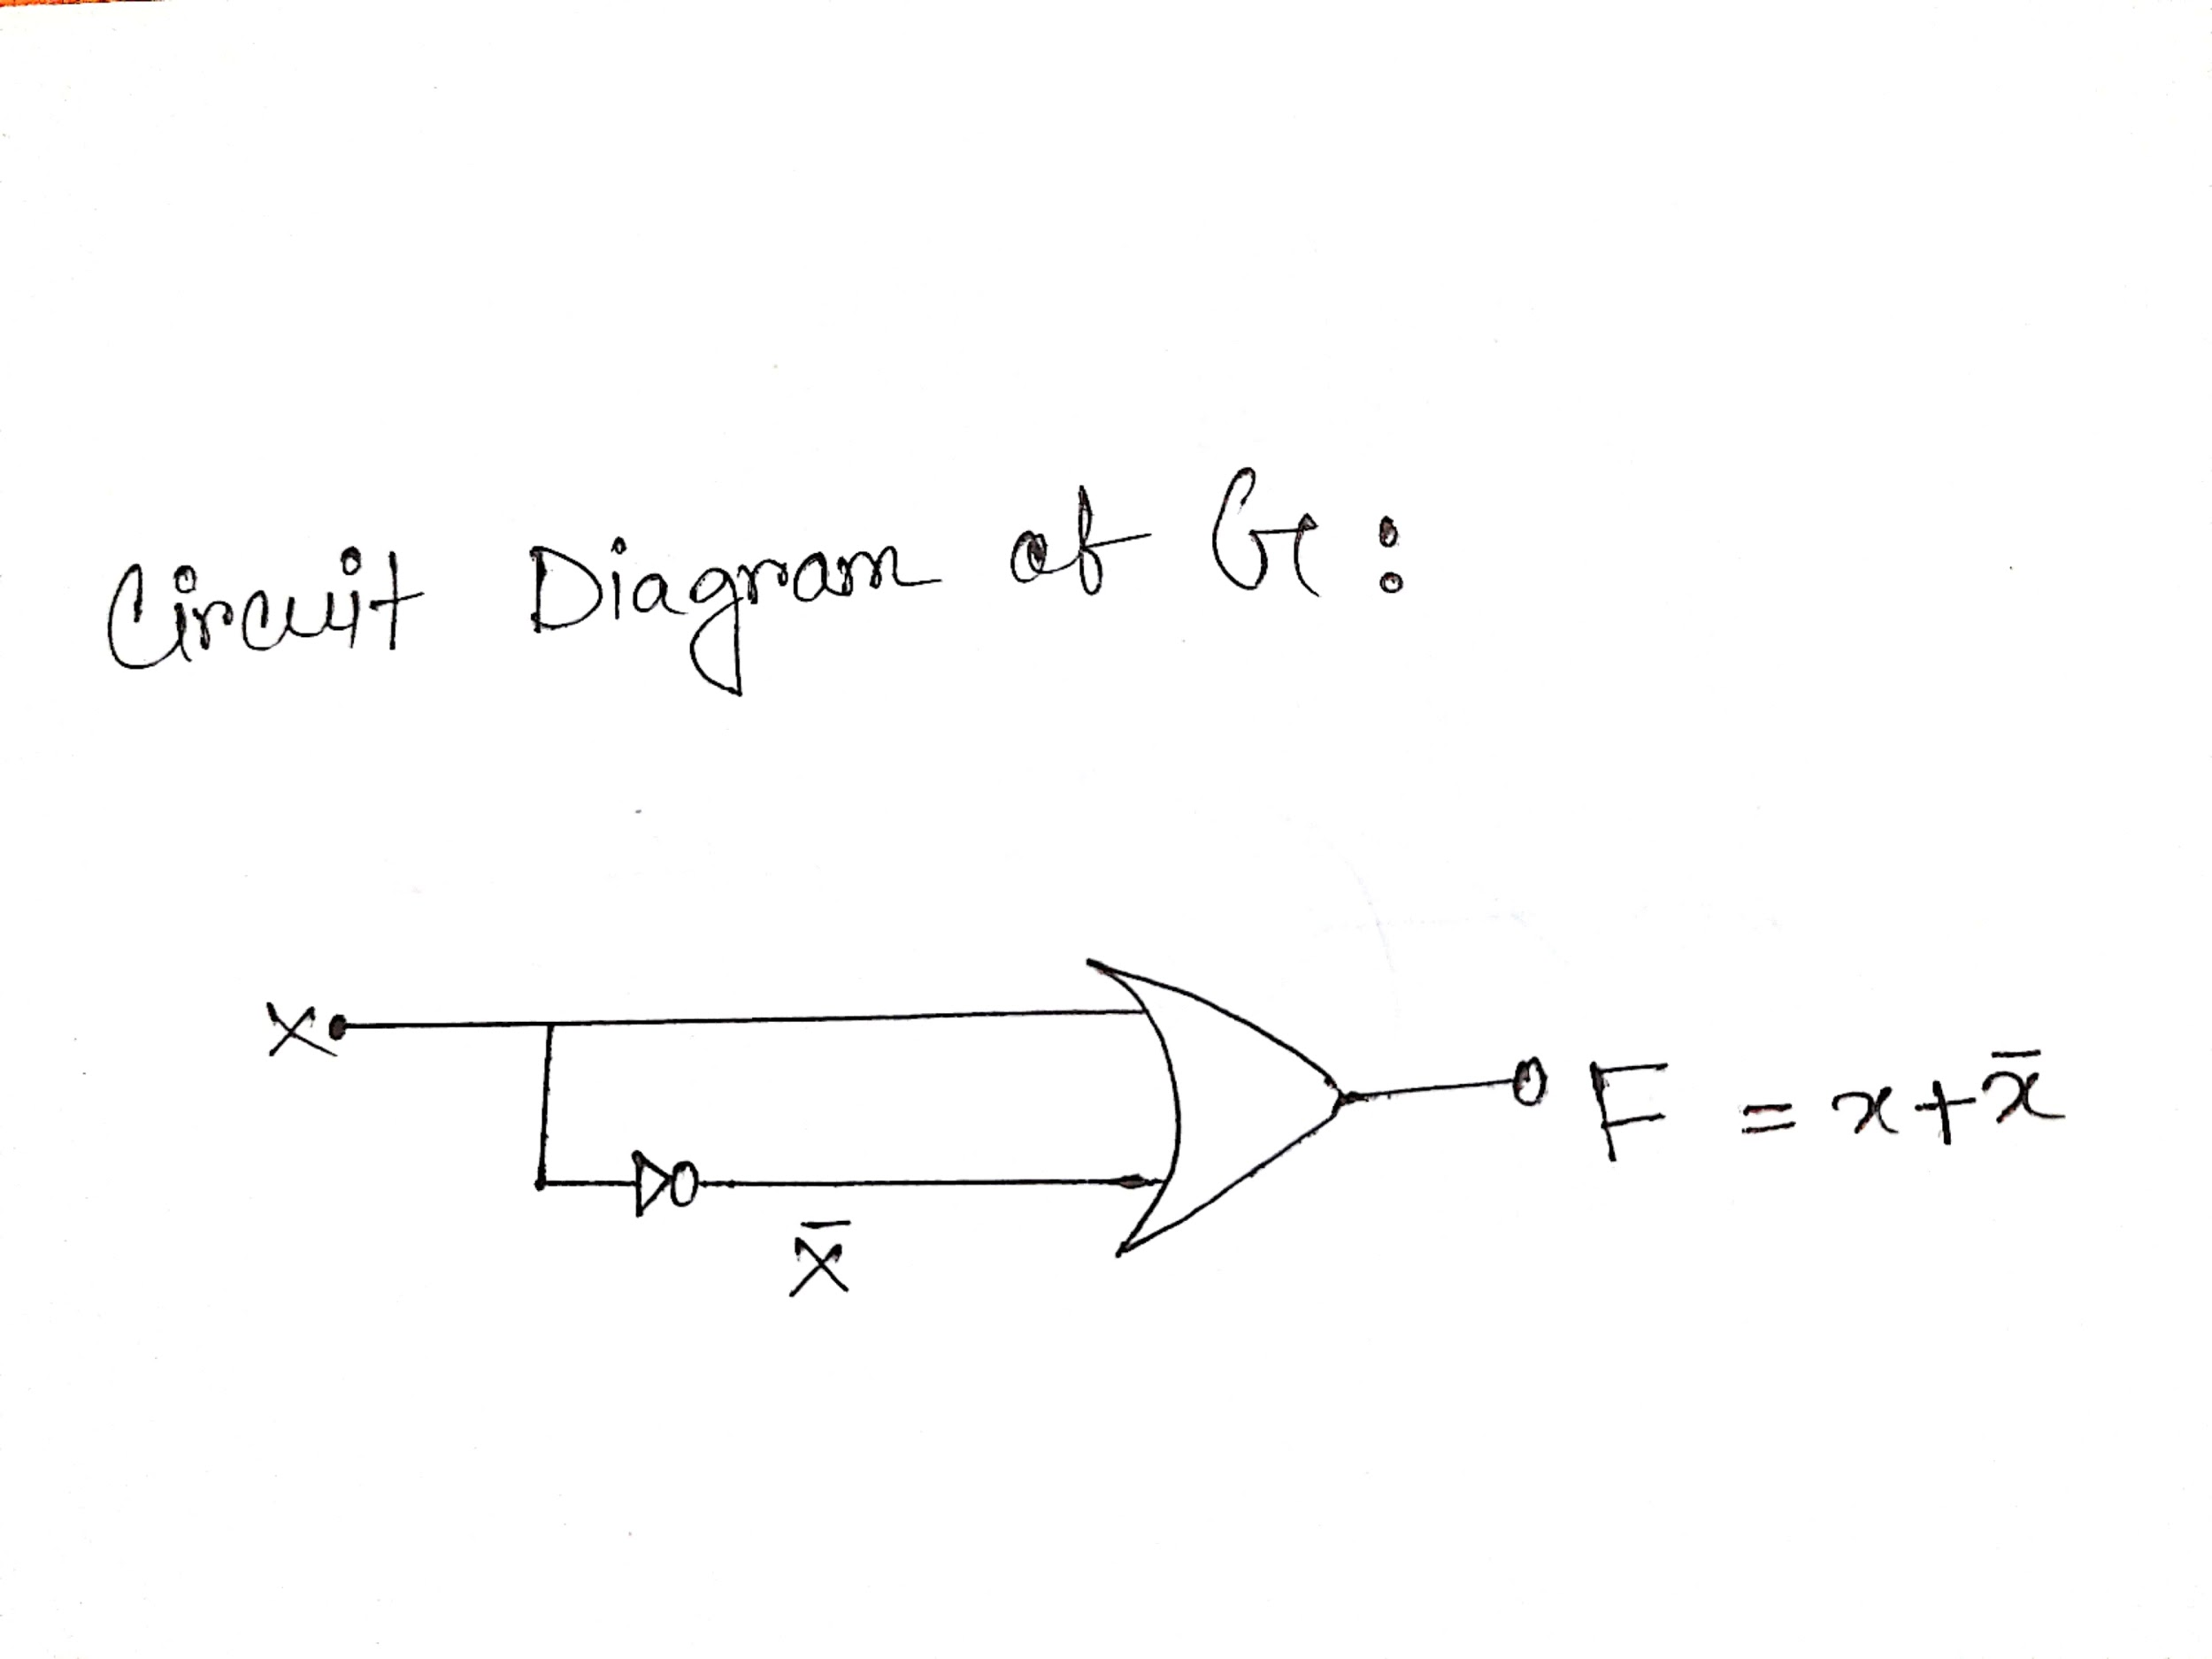 Circuit Diagram of G:
X
F = x + x̄
X̄